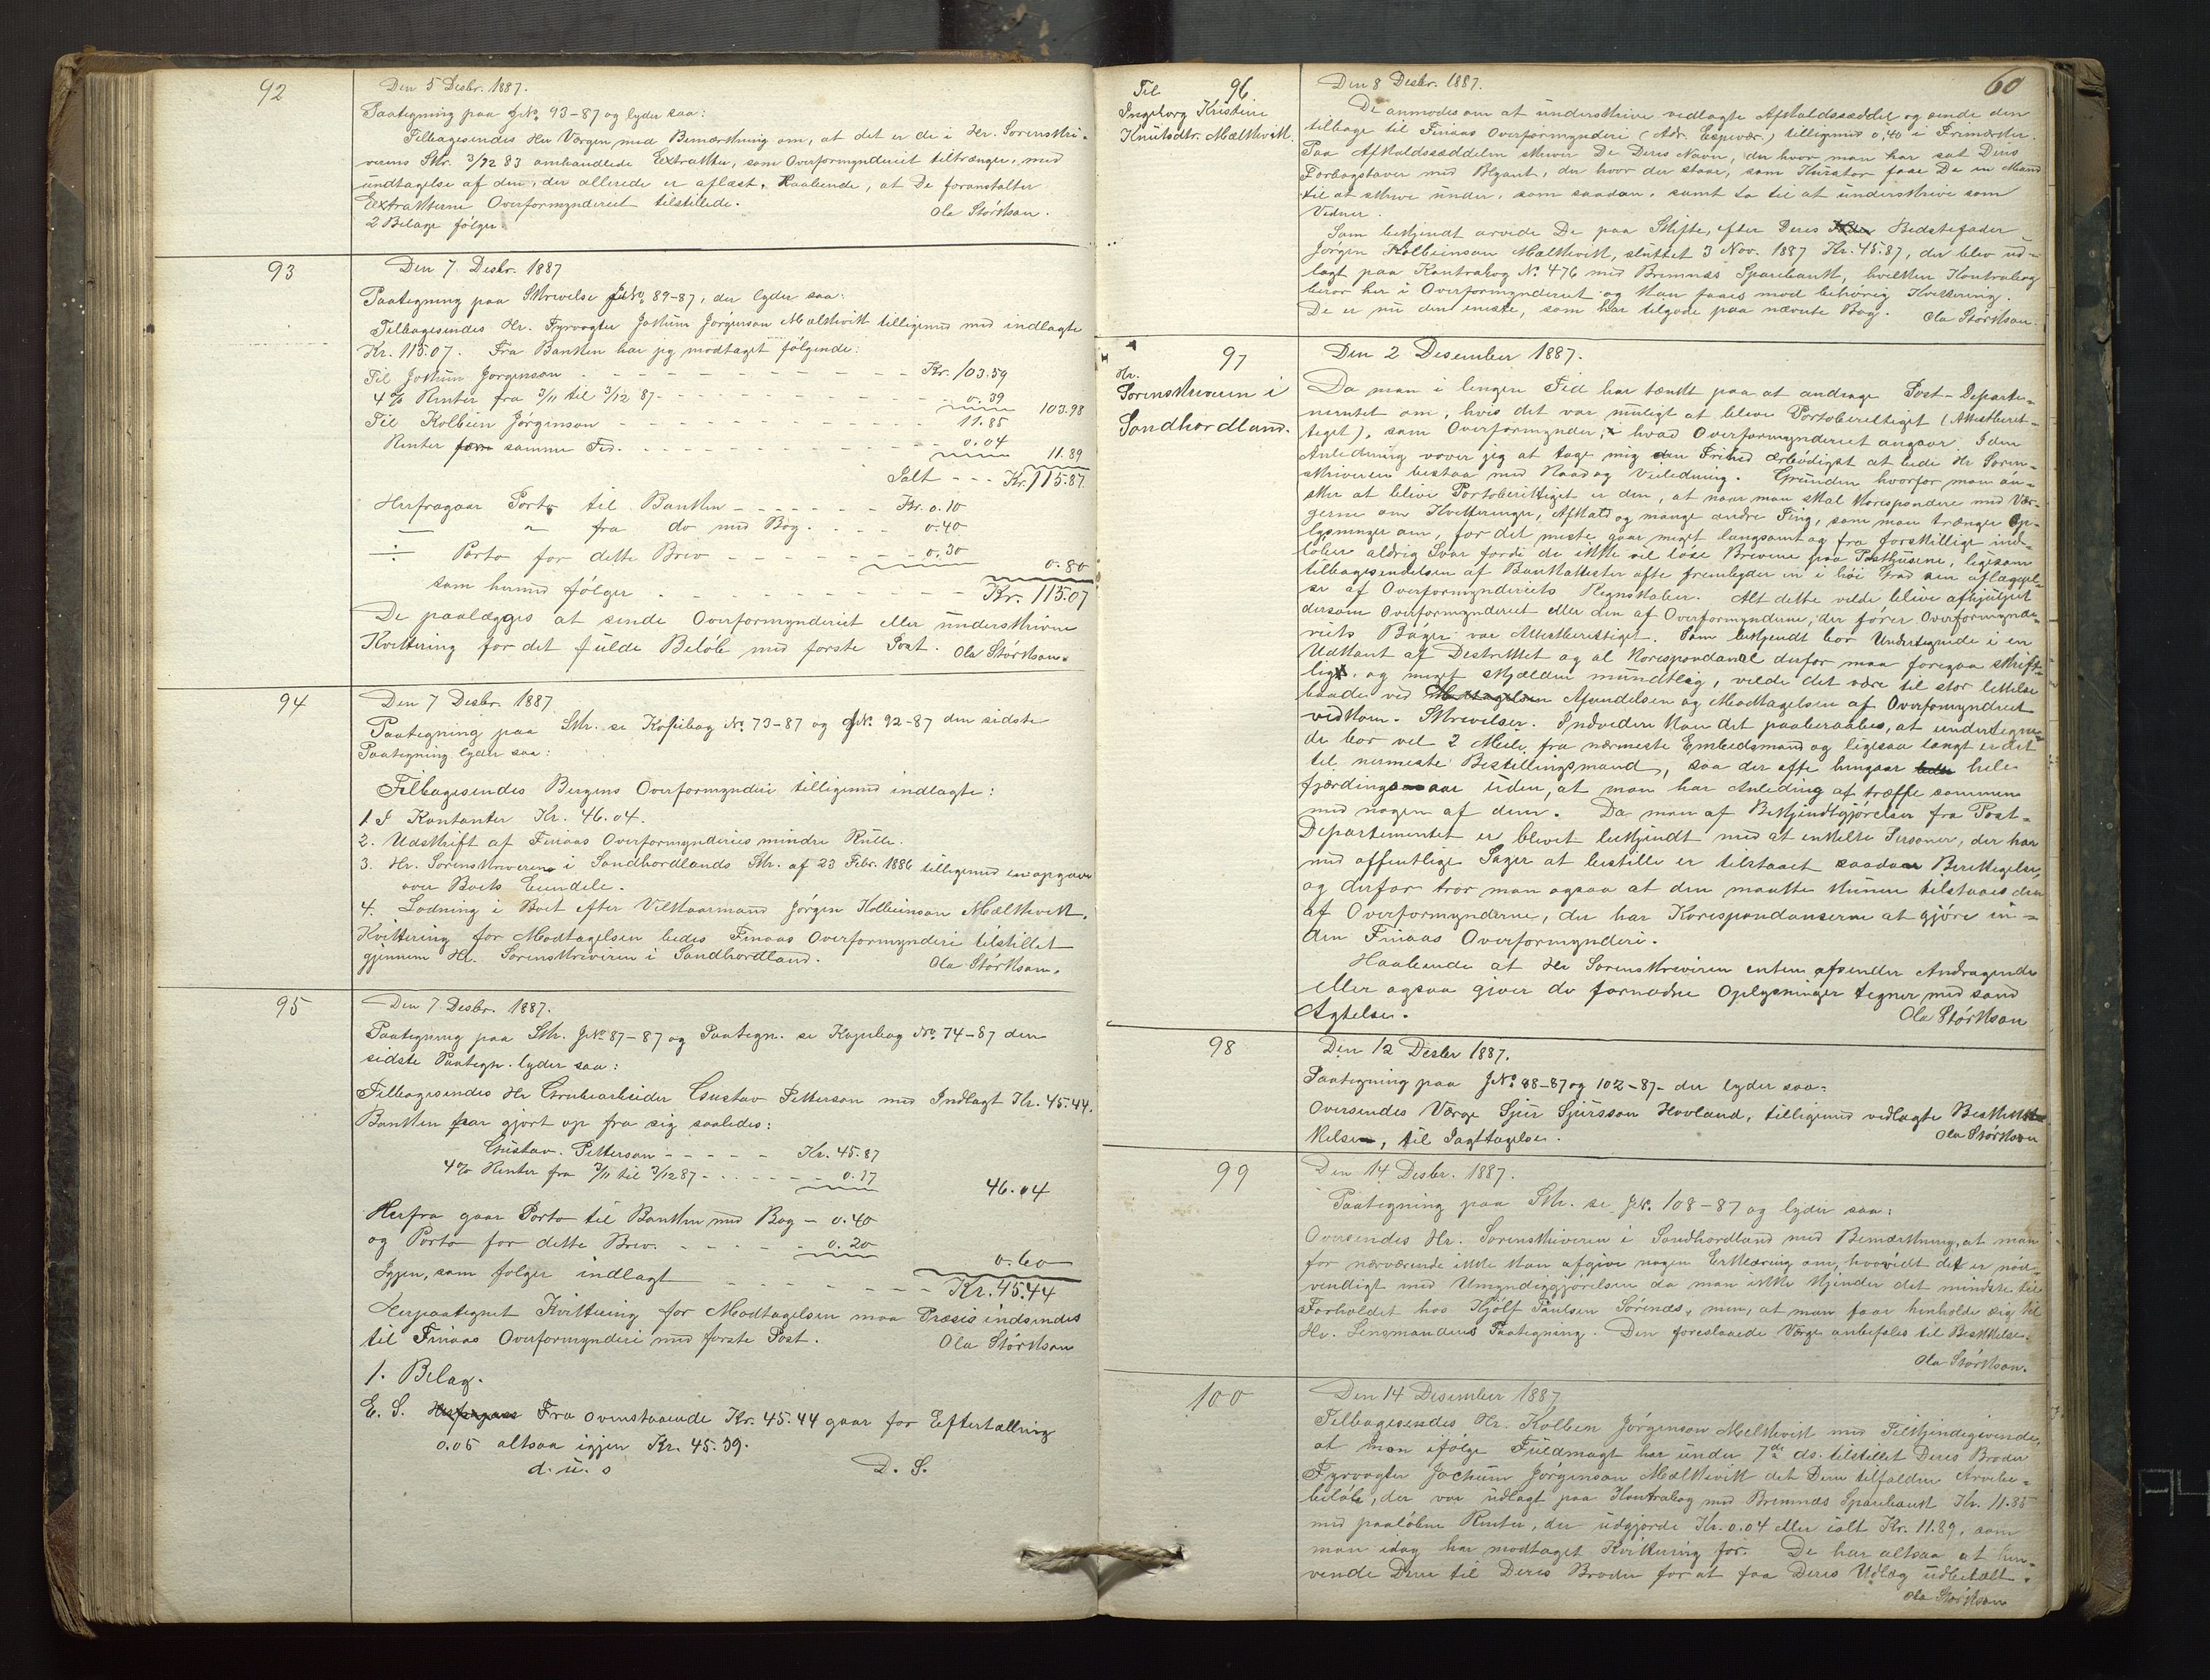 92
Den 5 Desbr. 1887.
Paategning paa JNo. 93-87 og lyder saa:
Tilbagesendes Hr Værgen med Bemærkning om, at det er de i Hr. Sorenskri-
verens Skr. 3/12 83 omhandlede Extrakter, som Overformynderiet tiltrænger, med
undtagelse af den, der allerede er aflæst. Haabende, at De foranstalter
Extrakterne Overformynderiet tilstillede.
Ola Størkson.
2 Bilage følger.
93
Den 7. Desbr. 1887
Paategning paa Skrivelse JNo. 89-87, der lyder saa:
Tilbagesendes Hr. Fyrvogter Jokum Jørgenson Mælkevik tilligemed med indlagte
Kr. 115.07. Fra Banken har jeg modtaget følgende:
Til Jokum Jørgenson - - - Kr. 103.59
4% Renter fra 3/11 til 3/12 87 - - - 0.39 103.98
Til Kolbein Jørginson - - - 11.85
Renter samme Tid - - - 0.04 11.89
Ialt - - - Kr. 115.87
Herfragaar Porto til Banken - - - Kr. 0.10
— " fra do med Bog - - - 0.40
÷ Porto for dette Brev - - - 0.30 0.80
som hermed følger - - - Kr. 115.07
De paalægges at sende Overformynderiet eller underskrive
Kvittering for det fulde Beløb med første Post. Ola Størkson.
94
Den 7 Desbr. 1887
Paategning paa Skr. se Kopibog No. 73-87 og JNo. 92-87 den sidste
Paategning lyder saa:
Tilbagesendes Bergens Overformynderi tilligemed indlagte:
1. I Kontanter Kr. 46.04.
2. Udskrift af Finaas Overformynderies mindre Rulle.
3. Hr. Sorenskriverens i Søndhordlands Skr. af 23 Febr. 1886 tilligemed en opgave
over Boets Eiendele.
4. Lodning i Boet efter Vilkaarmand Jørgen Kolbeinson Mælkevik.
Kvittering for Modtagelsen bedes Finaas Overformynderi tilstillet
gjennem Hr. Sorenskriveren i Søndhordland.
Ola Størkson.
95
Den 7 Desbr. 1887.
Paategning paa Skr. JNo 87-87 og Paategn. se Kopibog No. 74-87 den
sidste Paategn. lyder saa:
Tilbagesendes Hr Grubearbeider Gustav Petterson med Indlagt Kr. 45.44.
Banken har gjort op fra sig saaledes:
Gustav Petterson - - - Kr. 45.87
4% Renter fra 3/11 til 3/12 87 - - - 0.17 46.04
Herfra gaar Porto til Banken med Bog - 0.40
og Porto for dette Brev. - - - 0.20 0.60
Igjen, som følger indlagt - - - Kr. 45.44
Herpaategnet Kvittering for Modtagelsen maa Præsis indsendes
til Finaas Overformynderi med første Post.
Ola Størkson
1. Bilag.
E. S. Fra ovenstaaende Kr. 45.44 gaar for Eftertælling
0.05 altsaa igjen Kr. 45.39.
d. u. s D. S.
60
96
Til
Ingeborg Kristine
Knutsdtr. Mælkevik.
Den 8 Desbr. 1887.
De anmodes om at underskrive vedlagte Afkaldsseddel og sende den
tilbage til Finaas Overformynderi (Adr. Espevær.) tilligemed 0,40 i Frimærker.
Paa Afkaldsseddelen skriver De Deres Navn, der hvor man har sat Deres
Forbogstaver med Blyant, der hvor der staar, som Kurator faar De en Mand
til at skrive under, som saadan, samt to til at underskrive som
Vidner.
Som bekjendt arvede De paa Skifte, efter Deres Bedstefader
Jørgen Kolbeinson Mælkevik, sluttet 3 Nov. 1887 Kr. 45.87, der blev ud-
lagt paa Kontrabog No. 476 med Bremnæs Sparebank, hvilken Kontrabog
beror her i Overformynderiet og kan faaes mod behørig Kvittering.
De er nu den eneste, som har tilgode paa nævnte Bog. Ola Størkson.
97
Hr.
Sorenskriveren i
Søndhordland.
Den 2 Desember 1887.
Da man i lengere Tid har tænkt paa at andrage Post-Departe-
mentet om, hvis det var muligt at blive Portoberettiget (Atestberet-
tiget), som Overformynder, hvad Overformynderiet angaar. I den
Anledning vover jeg at tage mig den Frihed ærbødigst at bede Hr Soren-
skriveren bistaa med Raad og Veiledning. Grunden hvorfor man øn-
sker at blive Portoberettiget er den, at naar man skal korespondere med Vær-
gerne om Kvitteringer, Afkald og mange andre Ting, som man trænger Op-
lysninger om, for det meste, gaar meget langsomt og fra forskillige ind-
løber aldrig Svar fordi de ikke vil løse Brevene paa Posthusene, ligesom
tilbagesendelsen af Bankattester ofte fremlyder en i høi Grad sen aflæggel-
se af Overformynderiets Regnskaber. Alt dette vilde blive afhjulpet
dersom Overformynderiet eller den af Overformynderne, der fører Overformynde-
riets Bøger var Atestberettiget. Som bekjendt bor Undertegnede i en
Udkant af Destriktet og al Korespondance derfor maa foregaa skrift-
lig, og meget skjælden mundtlig, vilde det være til stor lettelse
baade ved Afsendelsen og Modtagelsen af Overformyndriet
vedkom. Skrivelser. Indveden kan det paaberaabes, at undertegne-
de bor vel 2 Mile fra nærmeste Embedsmand og ligesaa langt er det
til nermeste Bestillingsmand, saa der ofte hengaar hele
fjærdingsaar uden, at man har Anledning af træffe sammen
med nogen af dem. Da man af Bekjendtgjørelser fra Post-
Departementet er blevet bekjendt med at enkelte Personer, der har
med offentlige Sager at bestille er tilstaaet saadan Berettigelse,
og derfor tror man ogsaa at den maatte kunne tilstaaes den
af Overformynderne, der har Korespondanserne at gjøre in-
den Finaas Overformynderi.
Haabende at Hr Sorenskriveren enten afsender Andragende
eller ogsaa giver de fornødne Oplysninger tegner med sand
Agtelse.
Ola Størkson
98
Den 12 Desbr 1887.
Paategning paa JNo. 88-87 og 102-87 - der lyder saa:
Oversendes Værge Sjur Sjursson Hovland, tilligemed vedlagte Beskik-
kelse, til Iagttagelse.
Ola Størkson
99
Den 14 Desbr. 1887.
Paategning paa Skr. se JNr. 108-87 og lyder saa:
Oversendes Hr. Sorenskriveren i Søndhordland med Bemærkning, at man
for nærværende ikke kan afgive nogen Erklæring om, hvorvidt det er nød-
vendigt med Umyndiggjørelsen da man ikke kjender det mindste til
Forholdet hos Hjølf Paulsen Sørenæs, men, at man faar henholde sig til
Hr. Lensmandens Paategning. Den foreslaaede Værge anbefales til Beskikkelse.
Ola Størkson.
100
Den 14 Desember 1887
Tilbagesendes Hr. Kolben Jørgenson Melkevik med Tilkjendegivende,
at man ifølge Fuldmagt har under 7de ds. tilstillet Deres Broder
Fyrvogter Jochum Jørgenson Mælkevik det Dem tilfaldne Arvebe-
beløb, der var udlagt paa Kontrabog med Bremnæs Sparebank Kr. 11.85
med paaløbne Renter, der udgjorde Kr. 0.04 eller ialt Kr. 11.89, som
man idag har modtaget Kvittering for. De har altsaa at hen-
vende Dem til Deres Broder for at faa Deres Udlæg udbetalt.
Ola Størkson